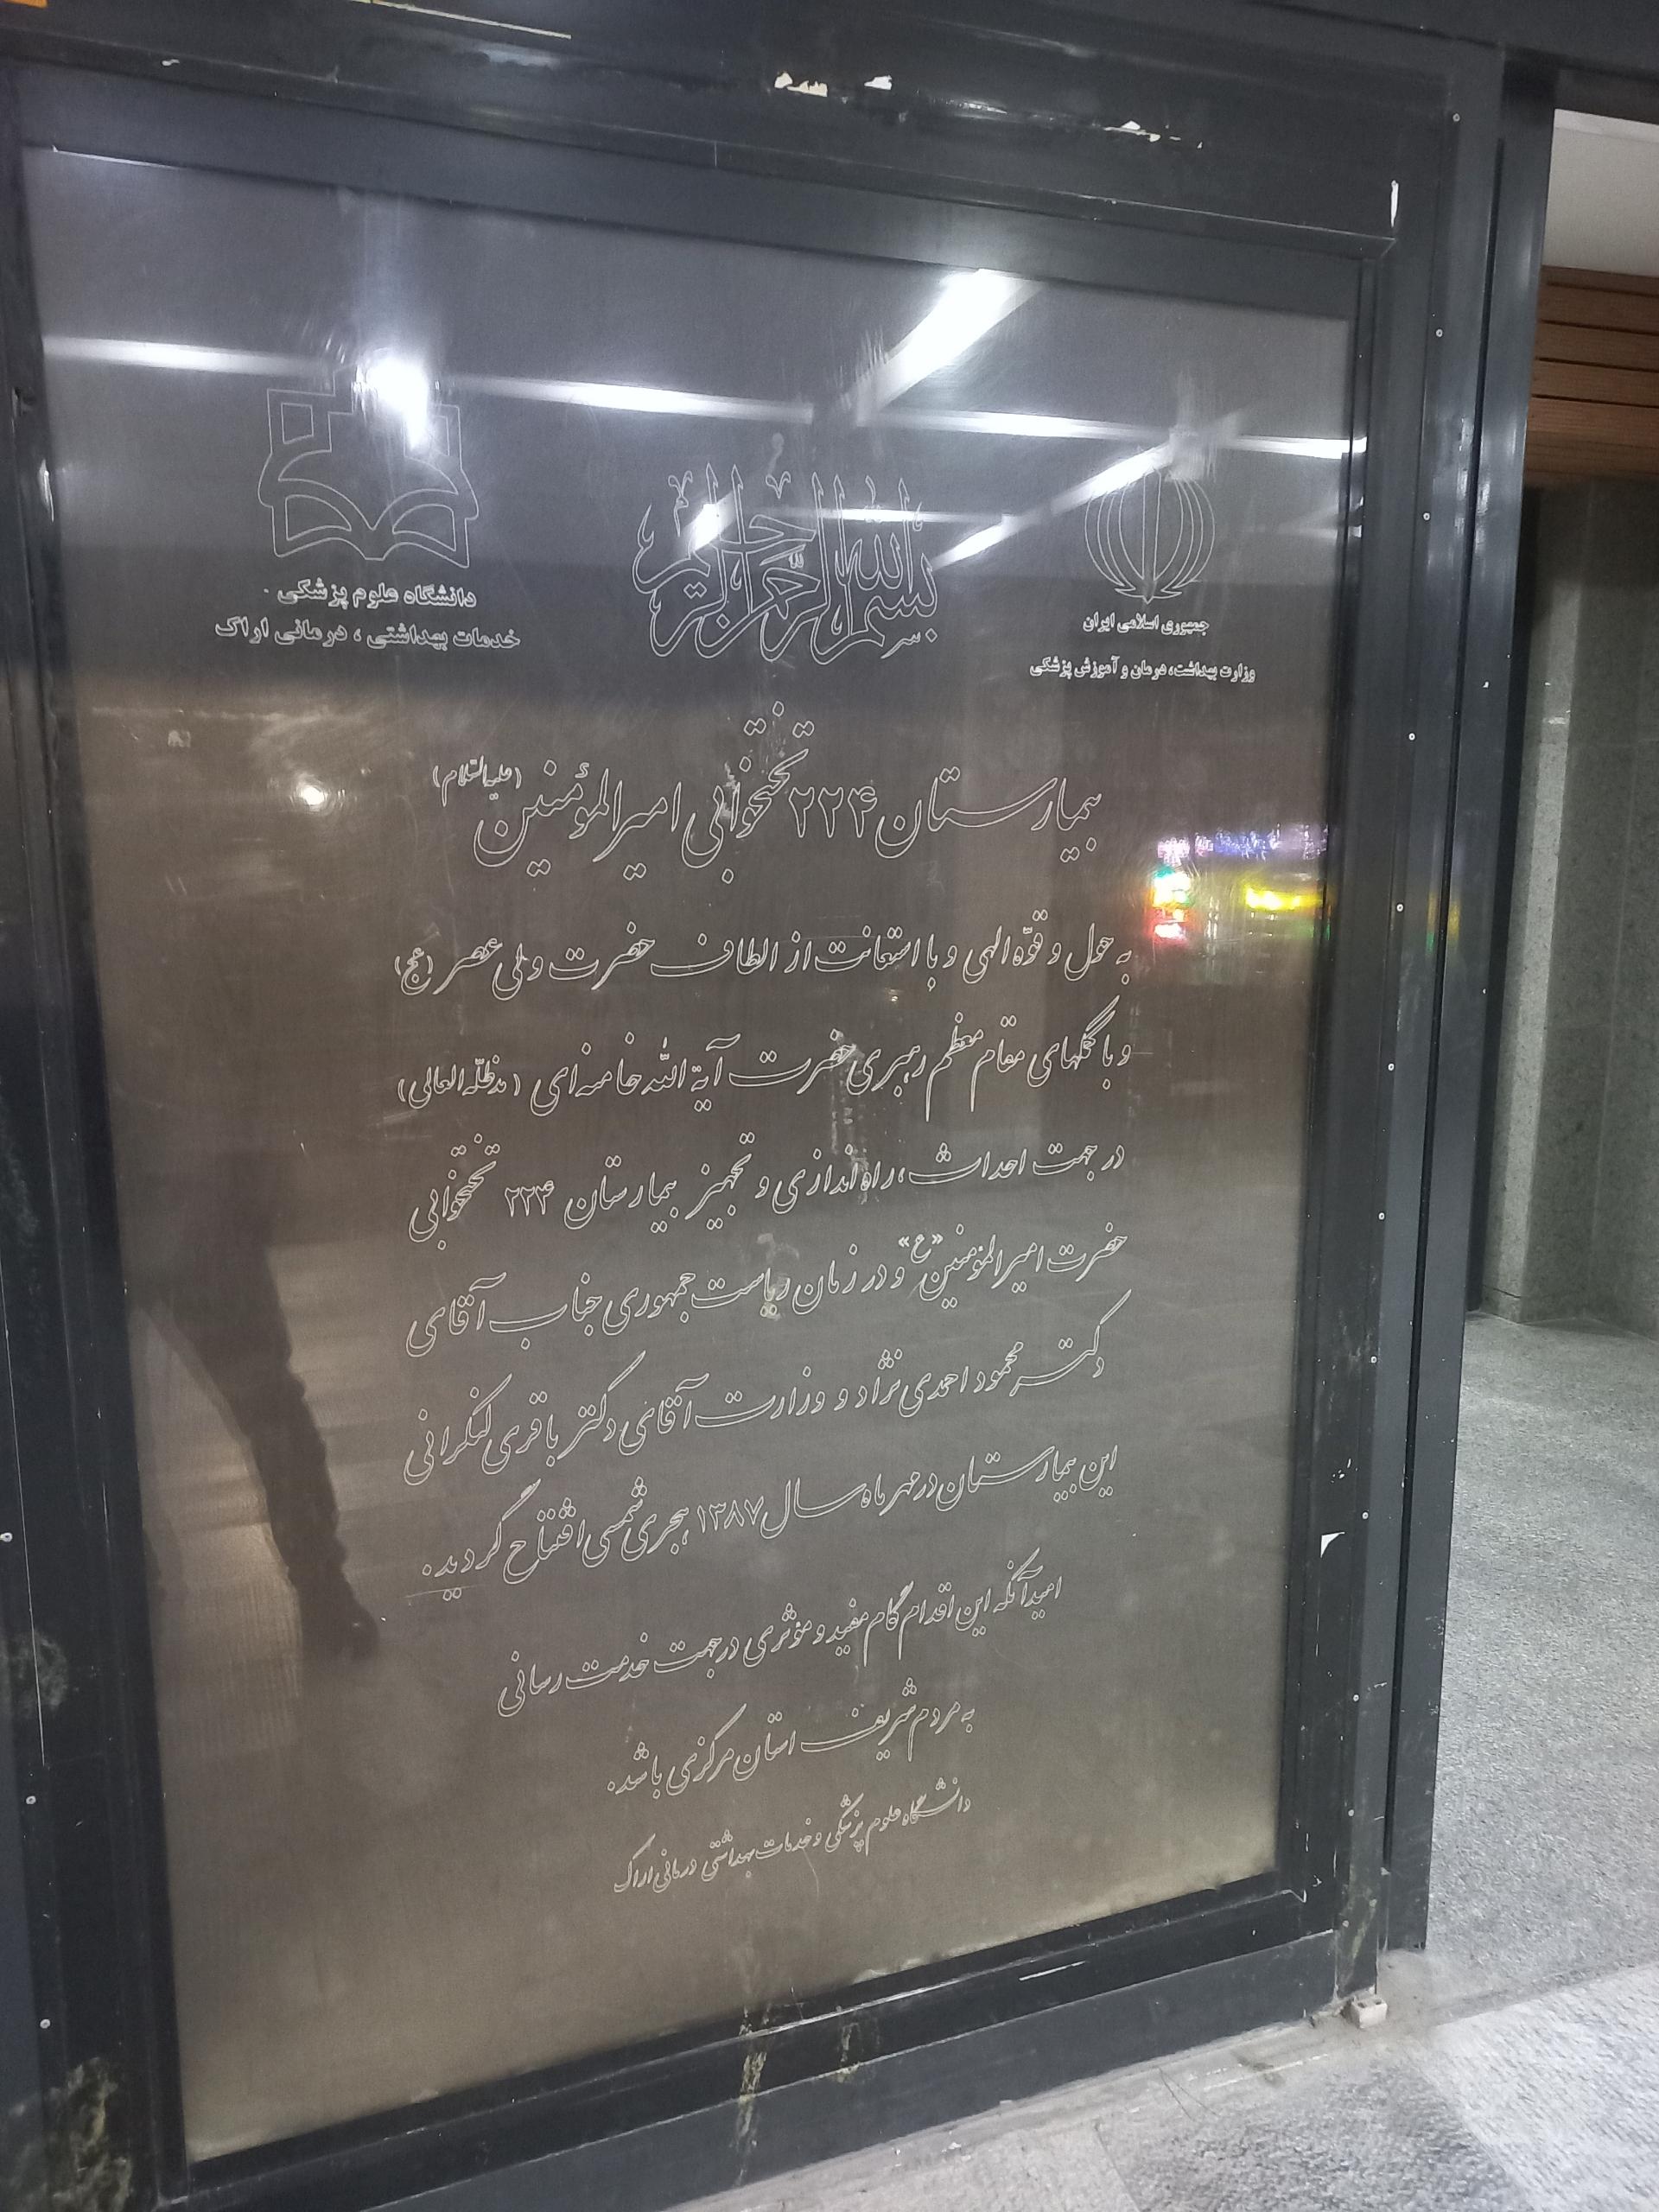 بسم الله الرحمن الرحیم
جمهوری اسلامی ایران
وزارت بهداشت، درمان و آموزش پزشکی
دانشگاه علوم پزشکی
خدمات بهداشتی ، درمانی اراک
بیمارستان ۲۲۴ تختخوابی امیرالمؤمنین (علیه‌السلام)
به حول و قوّه الهی و با استعانت از الطاف حضرت ولی عصر (عج)
و با کمکهای مقام معظم رهبری حضرت آیة الله خامنه‌ای (مدظلّه العالی)
در جهت احداث، راه‌اندازی و تجهیز بیمارستان ۲۲۴ تختخوابی
حضرت امیرالمؤمنین «ع» و در زمان ریاست جمهوری جناب آقای
دکتر محمود احمدی نژاد و وزارت آقای دکتر باقری لنکرانی
این بیمارستان در مهر ماه سال ۱۳۸۷ هجری شمسی افتتاح گردید.
امید آنکه این اقدام گام مفید و مؤثری در جهت خدمت رسانی
به مردم شریف استان مرکزی باشد.
دانشگاه علوم پزشکی و خدمات بهداشتی درمانی اراک